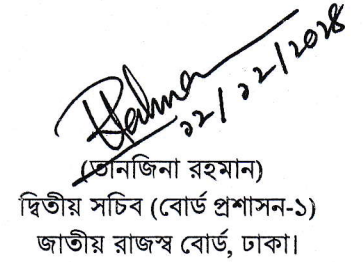 ১২/১২/২০২৪
(তানজিনা রহমান)
দ্বিতীয় সচিব (বোর্ড প্রশাসন-১)
জাতীয় রাজস্ব বোর্ড, ঢাকা।